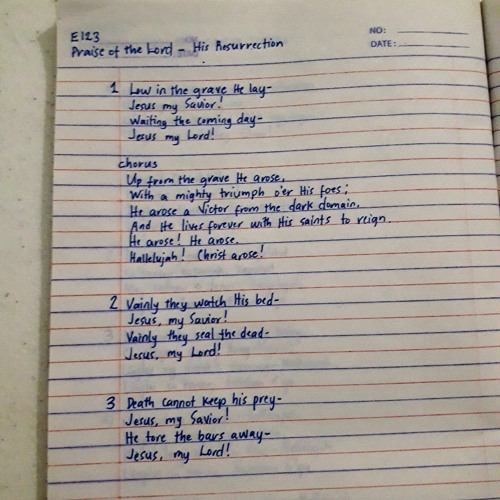 E123
Praise of the Lord - His Resurrection
NO:
DATE:
1 Low in the grave He lay-
Jesus my Savior!
Waiting the coming day-
Jesus my Lord!
chorus
Up from the grave He arose,
With a mighty triumph o'er His foes;
He arose a Victor from the dark domain,
And He lives forever with His saints to reign.
He arose! He arose.
Hallelujah! Christ arose!
2 Vainly they watch His bed-
Jesus, my Savior!
Vainly they seal the dead-
Jesus, my Lord!
3 Death cannot keep his prey-
Jesus, my Savior!
He tore the bars away-
Jesus, my Lord!